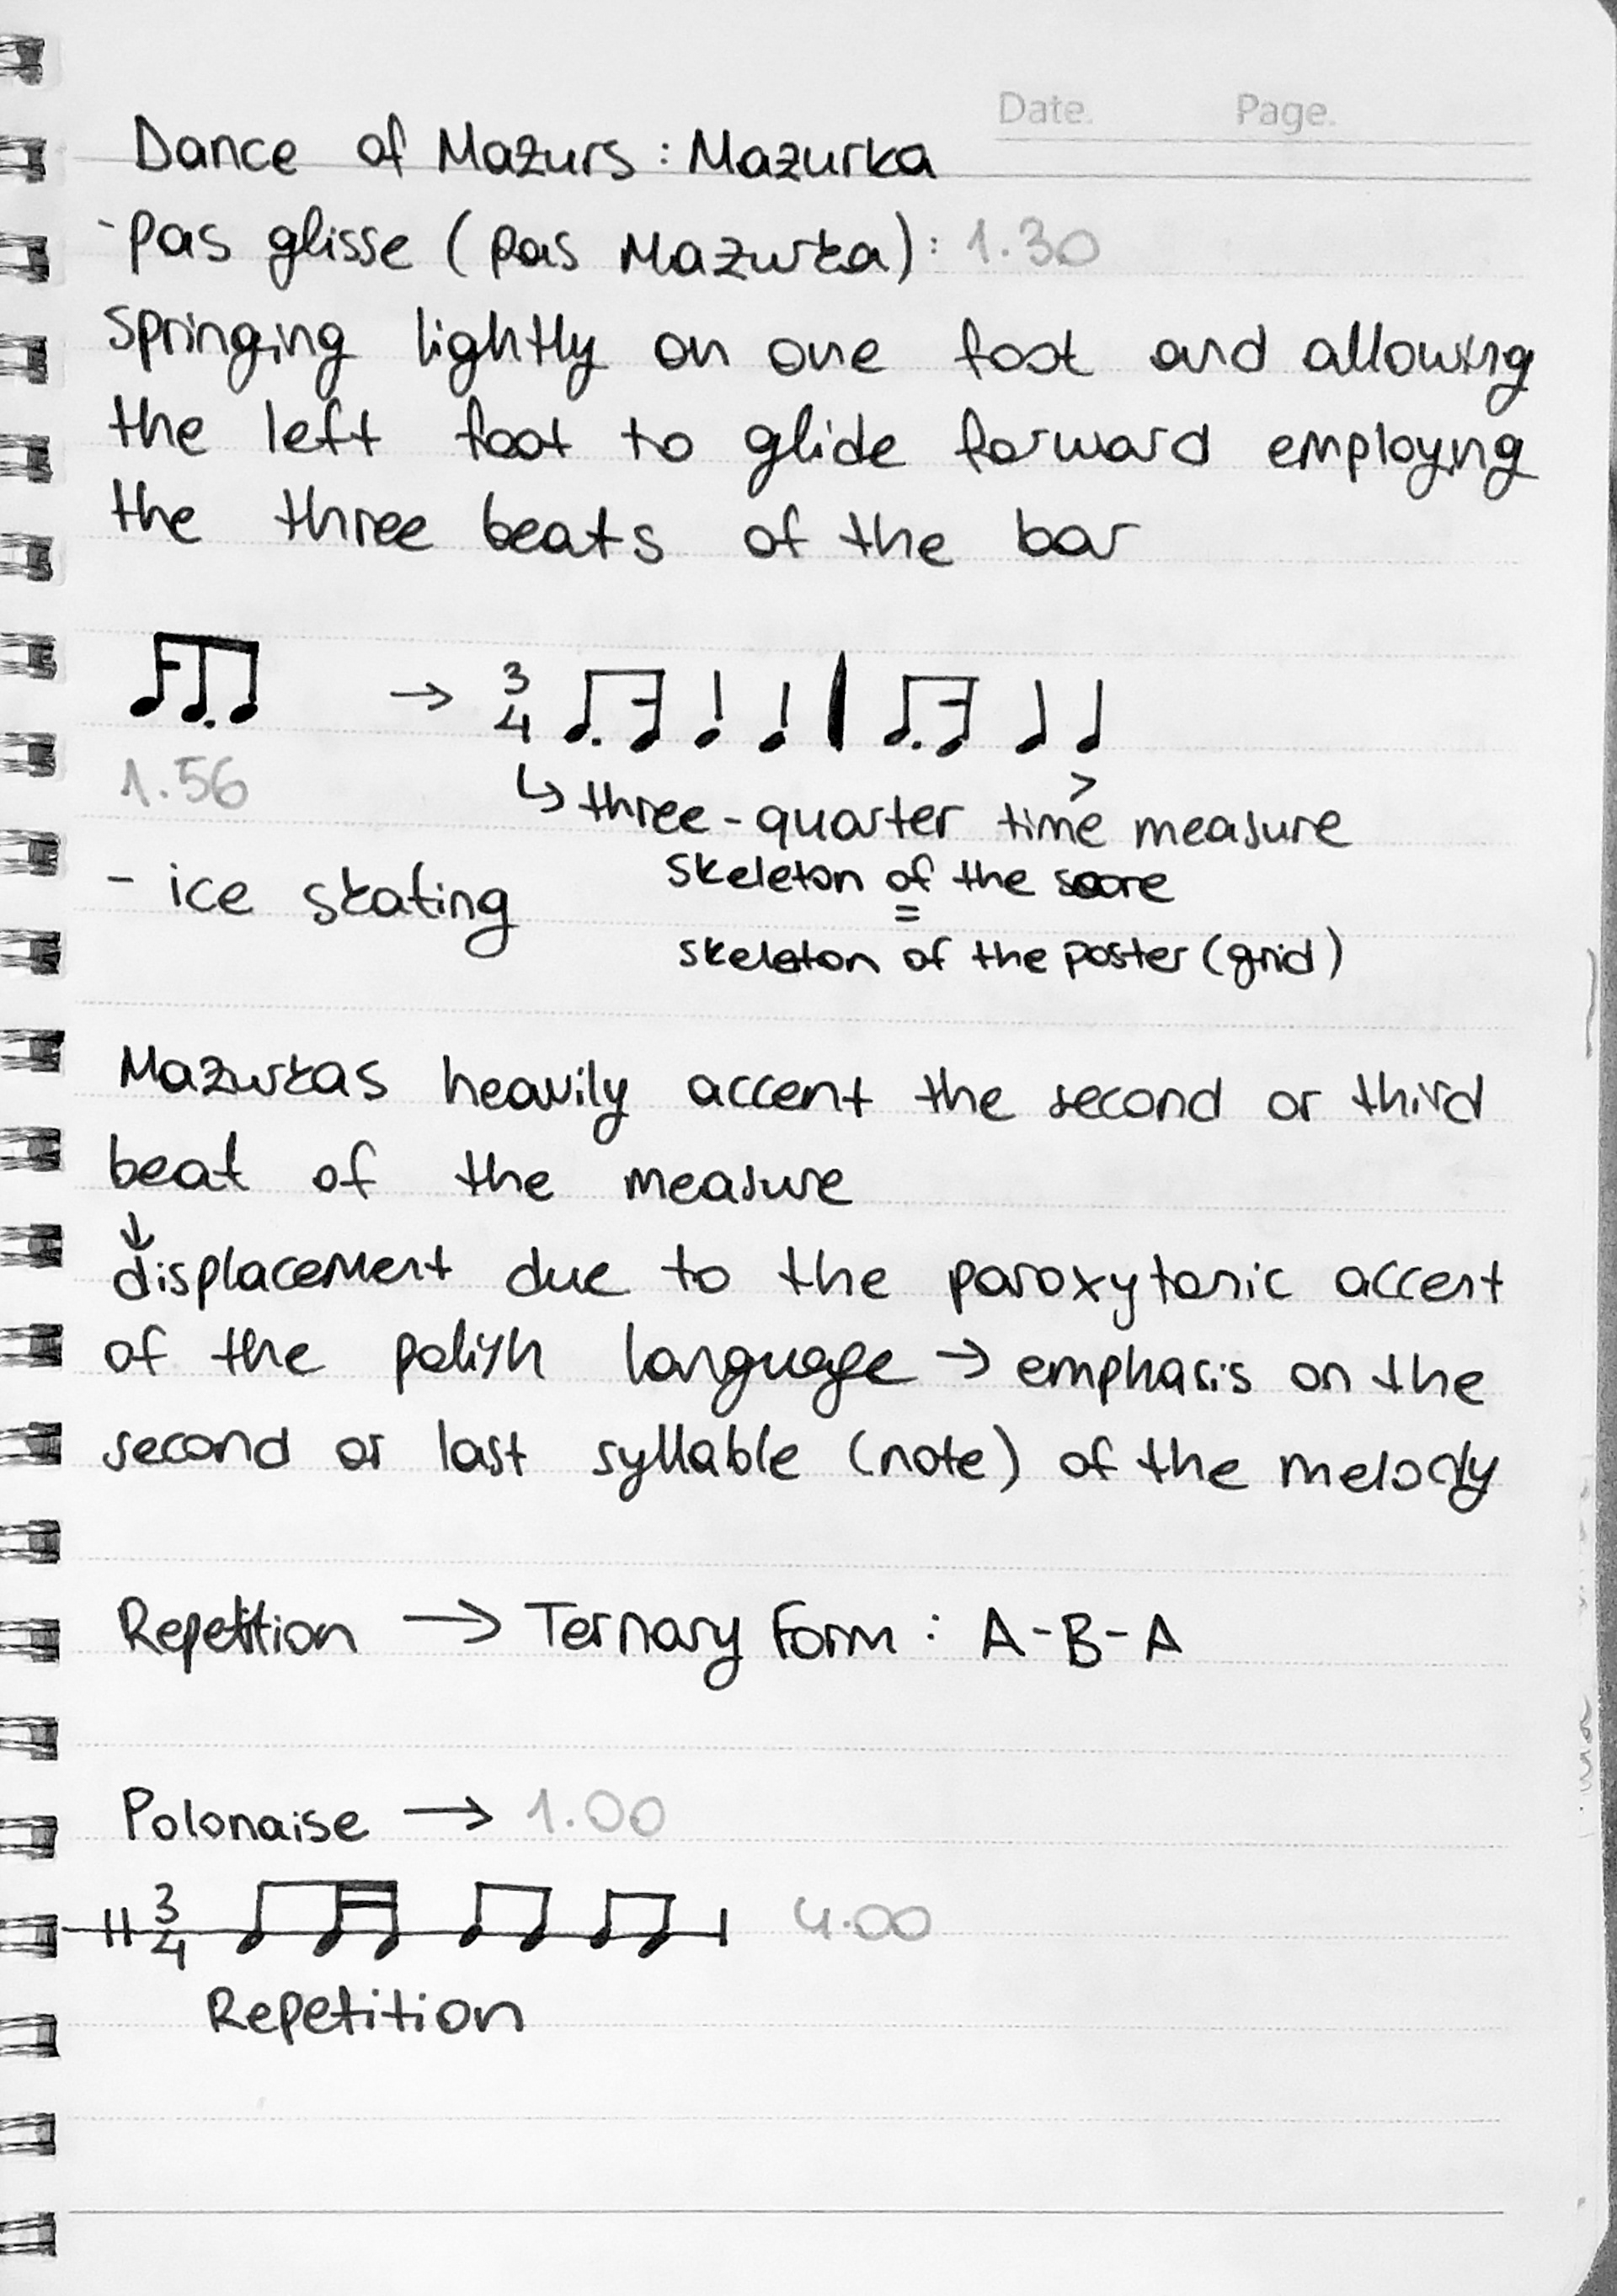 Date. Page.
Dance of Mazurs : Mazurka
- pas glisse ( pas Mazurka) : 1.30
springing lightly on one foot and allowing
the left foot to glide forward employing
the three beats of the bar
→ 3/4
1.56
↳ three-quarter time measure
>
- ice skating
skeleton of the score
=
skeleton of the poster (grid)
Mazurkas heavily accent the second or third
beat of the measure
↓
displacement due to the paroxytonic accent
of the polish language → emphasis on the
second or last syllable (note) of the melody
Repetition → Ternary Form : A-B-A
Polonaise → 1.00
3/4 4.00
Repetition